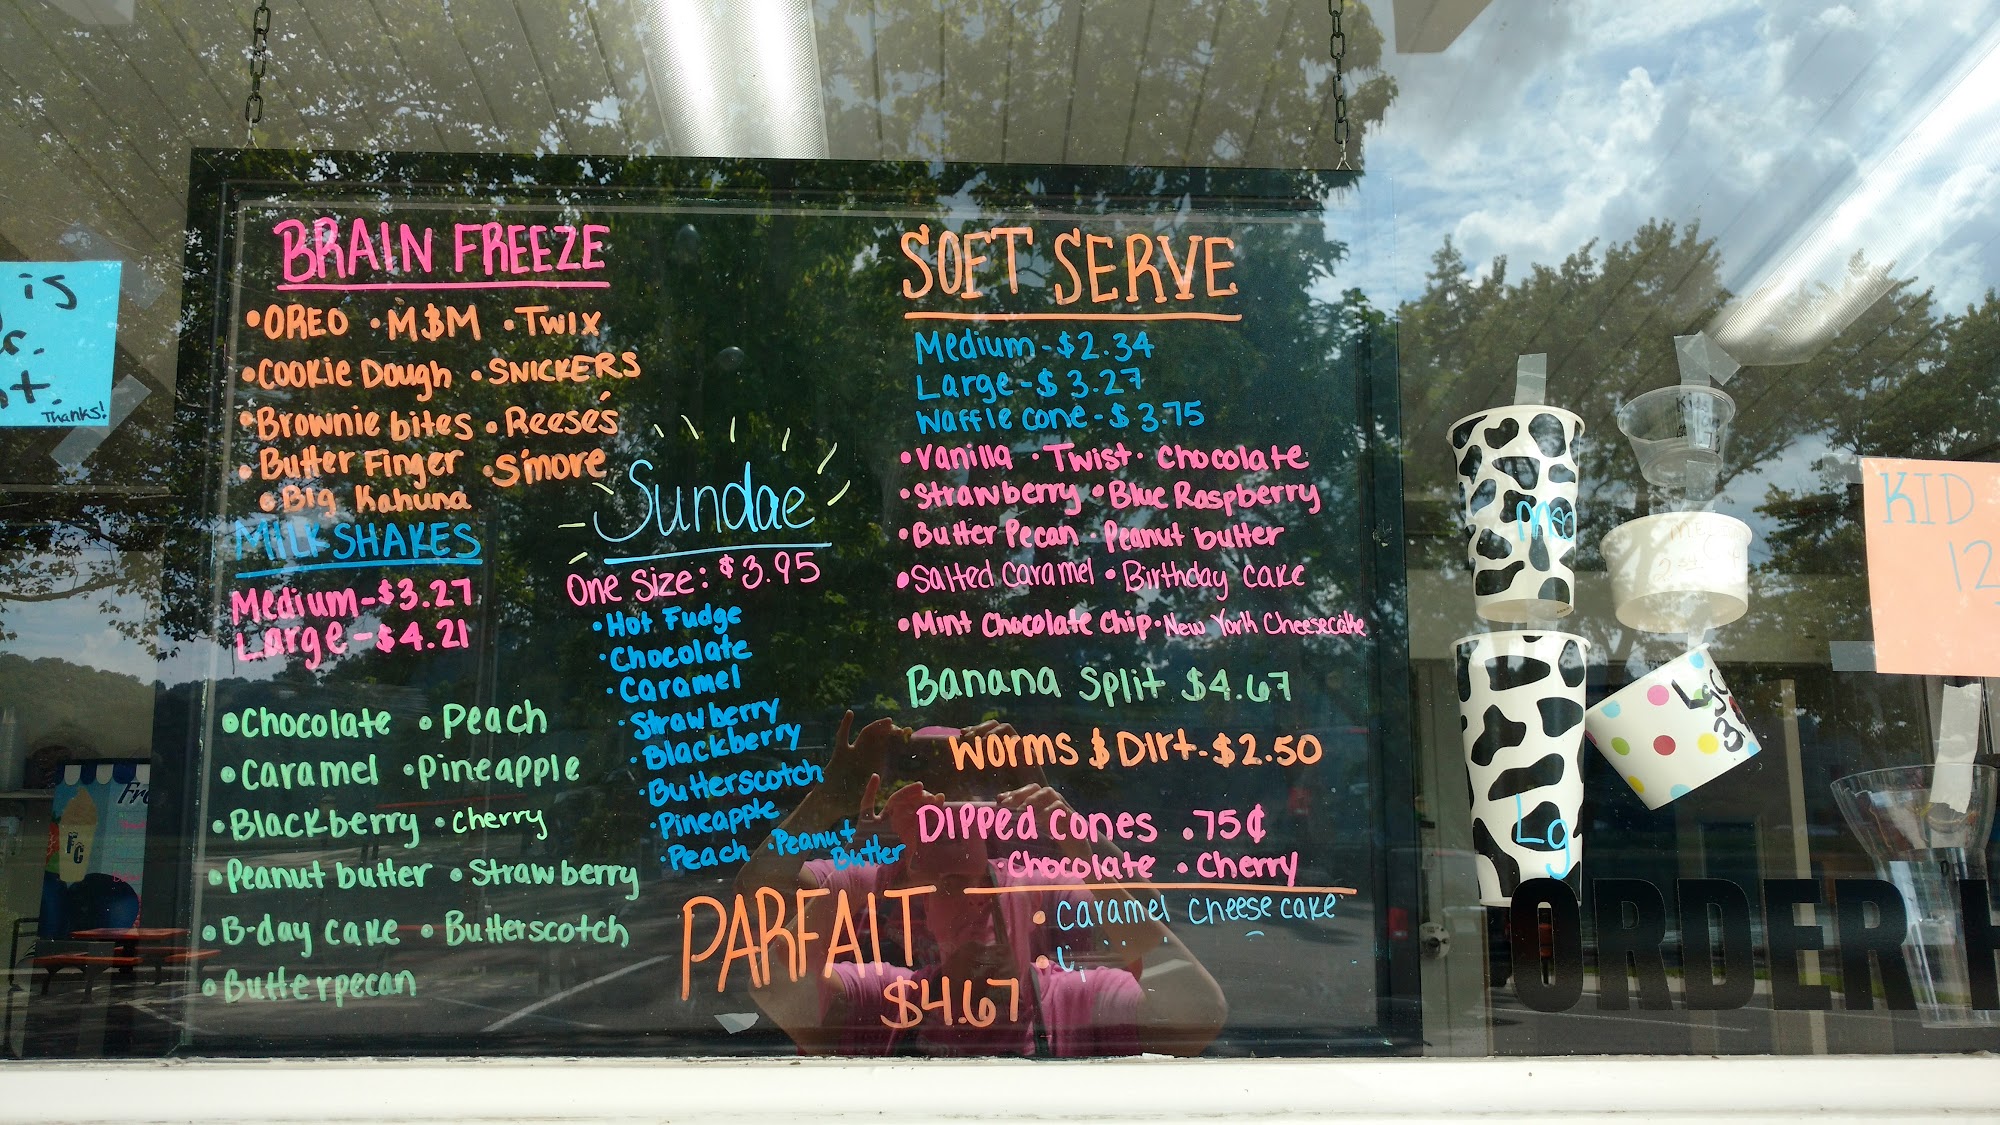 is
Thanks!
BRAIN FREEZE
•OREO •M&M •TWIX
•COOKIE DOUGH •SNICKERS
•Brownie bites •Reese's
•Butter Finger •S'more
•Big Kahuna
MILKSHAKES
Medium-$3.27
Large-$4.21
•Chocolate •Peach
•Caramel •Pineapple
•Blackberry •Cherry
•Peanut butter •Strawberry
•B-day cake •Butterscotch
•Butterpecan
Sundae
One Size: $3.95
•Hot Fudge
•Chocolate
•Caramel
•Strawberry
•Blackberry
•Butterscotch
•Pineapple
•Peach •Peanut Butter
PARFAIT
$4.67
•Caramel Cheesecake
SOFT SERVE
Medium-$2.34
Large-$3.27
Waffle cone-$3.75
•Vanilla •Twist •Chocolate
•Strawberry •Blue Raspberry
•Butter Pecan •Peanut butter
•Salted Caramel •Birthday cake
•Mint Chocolate Chip •New York Cheesecake
Banana Split $4.67
Worms & Dirt-$2.50
Dipped Cones .75¢
•Chocolate •Cherry
Med
Lg
KID
12
ORDER H
FC